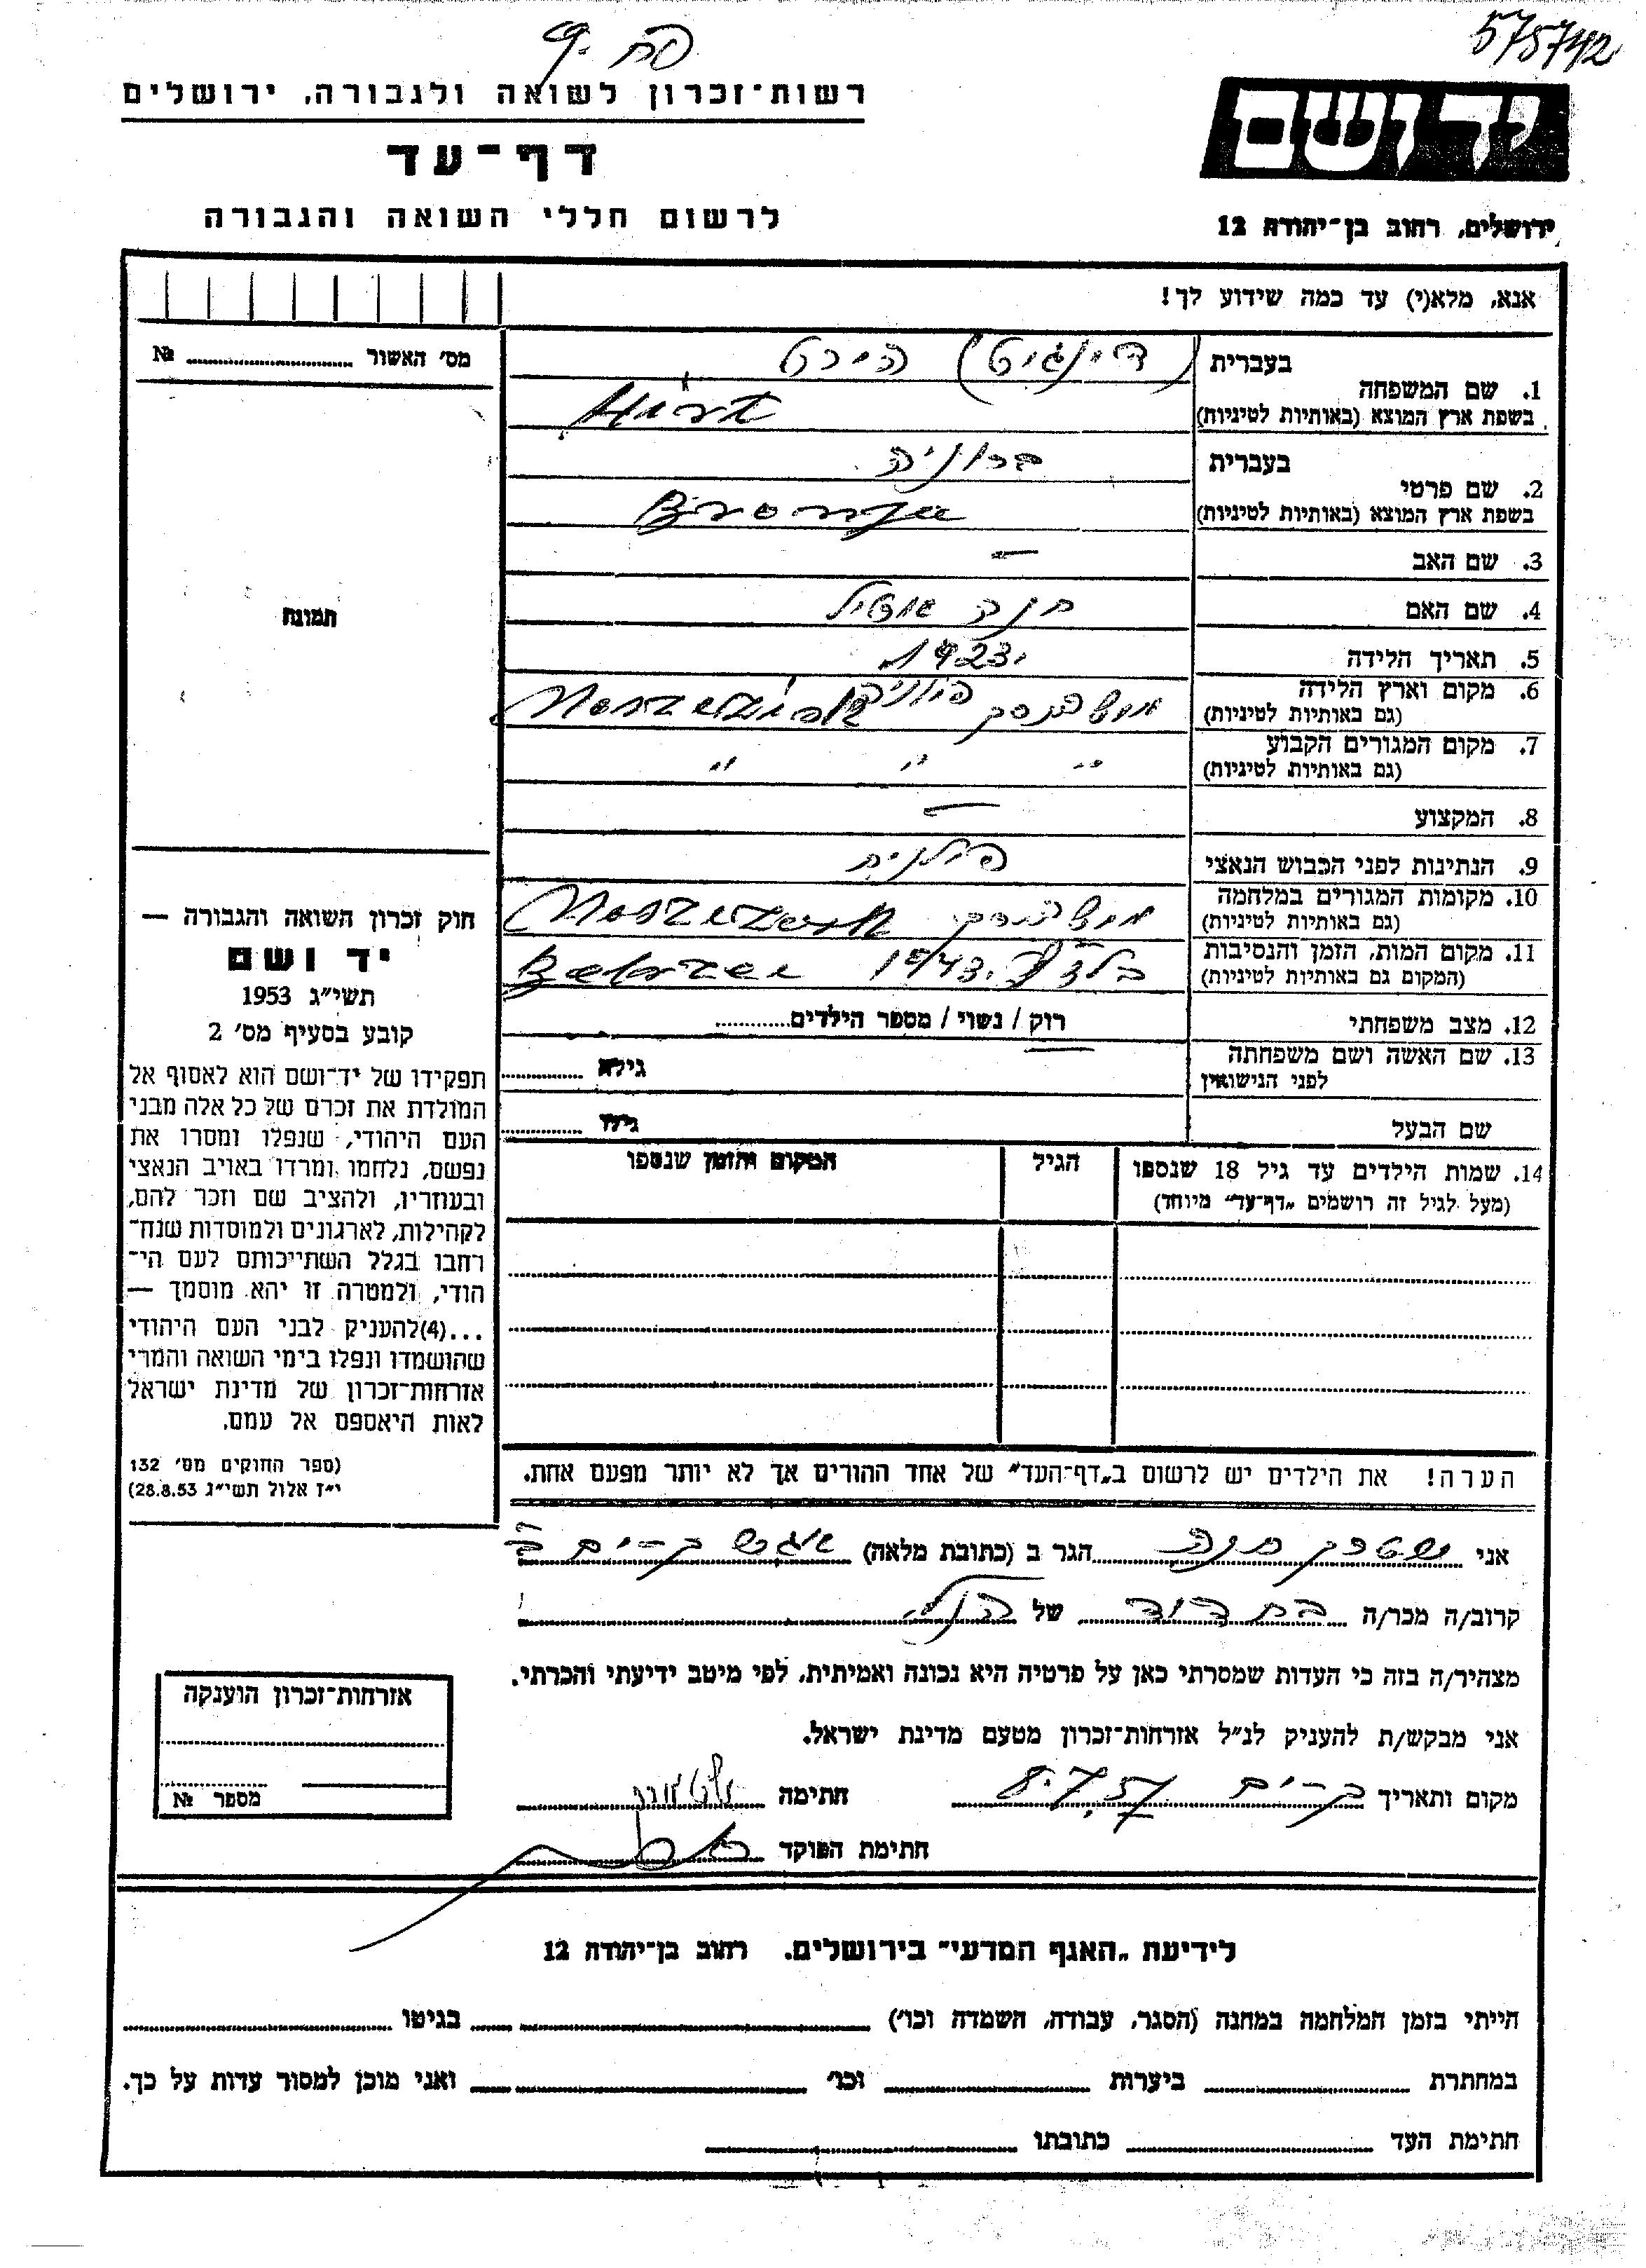 575742
רשות־זכרון לשואה ולגבורה, ירושלים
דף־עד
לרשום חללי השואה והגבורה
יד ושם
ירושלים, רחוב בן־יהודה 12
אנא, מלא(י) עד כמה שידוע לך!
מס׳ האשור № 
1. שם המשפחה
בעברית (דינגיט) הירט
בשפת ארץ המוצא (באותיות לטיניות) Hirt
2. שם פרטי
בעברית ברוניה
בשפת ארץ המוצא (באותיות לטיניות) Bronja
3. שם האב —
4. שם האם חנה
5. תאריך הלידה 1923
6. מקום וארץ הלידה
(גם באותיות לטיניות)
7. מקום המגורים הקבוע " " "
(גם באותיות לטיניות)
8. המקצוע —
9. הנתינות לפני הכבוש הנאצי פולנית
10. מקומות המגורים במלחמה
(גם באותיות לטיניות)
11. מקום המות, הזמן והנסיבות 1943
(המקום גם באותיות לטיניות)
12. מצב משפחתי רוק / נשוי / מספר הילדים
13. שם האשה ושם משפחתה
לפני הנישואין — גילא
שם הבעל גילו
14. שמות הילדים עד גיל 18 שנספו
(מעל לגיל זה רושמים „דף־עד" מיוחד)
הגיל
המקום והזמן שנספו
תמונה
חוק זכרון השואה והגבורה —
יד ושם
תשי״ג 1953
קובע בסעיף מס׳ 2
תפקידו של יד־ושם הוא לאסוף אל
המולדת את זכרם של כל אלה מבני
העם היהודי, שנפלו ומסרו את
נפשם, נלחמו ומרדו באויב הנאצי
ובעוזריו, ולהציב שם וזכר להם,
לקהילות, לארגונים ולמוסדות שנח־
רבו בגלל השתייכותם לעם הי־
הודי, ולמטרה זו יהא מוסמך —
...(4) להעניק לבני העם היהודי
שהושמדו ונפלו בימי השואה והמרי
אזרחות־זכרון של מדינת ישראל
לאות היאספם אל עמם.
(ספר החוקים מס׳ 132
י״ז אלול תשי״ג 28.8.53)
הערה! את הילדים יש לרשום ב„דף־העד" של אחד ההורים אך לא יותר מפעם אחת.
אני שטרן חנה הגר ב (כתובת מלאה)
קרוב/ה מכר/ה בת דוד של הנ״ל
מצהיר/ה בזה כי העדות שמסרתי כאן על פרטיה היא נכונה ואמיתית, לפי מיטב ידיעתי והכרתי.
אני מבקש/ת להעניק לנ״ל אזרחות־זכרון מטעם מדינת ישראל.
מקום ותאריך 8.7.57 חתימה
חתימת הפוקד
אזרחות־זכרון הוענקה
מספר №
לידיעת „האגף המדעי" בירושלים. רחוב בן־יהודה 12
הייתי בזמן המלחמה במחנה (הסגר, עבודה, השמדה וכו׳) בגיטו
במחתרת ביערות וכו׳ ואני מוכן למסור עדות על כך.
חתימת העד כתובתו